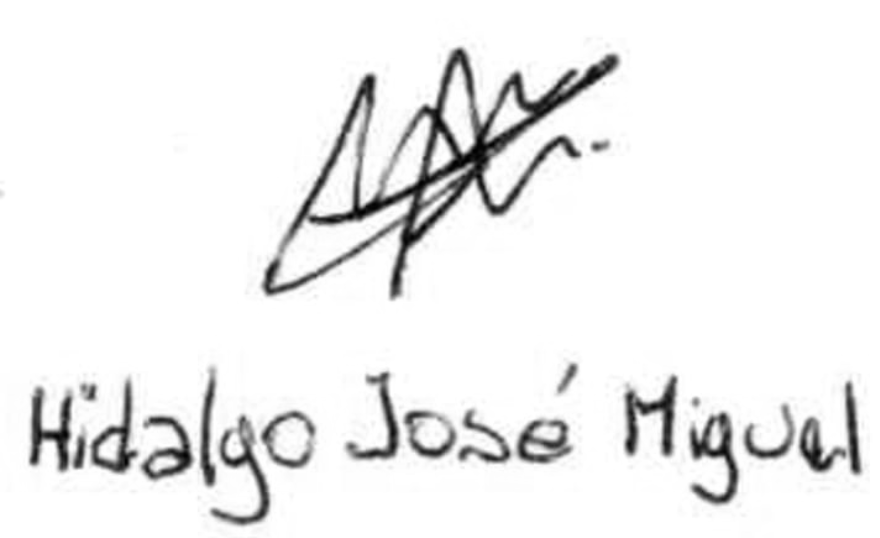 Hidalgo José Miguel